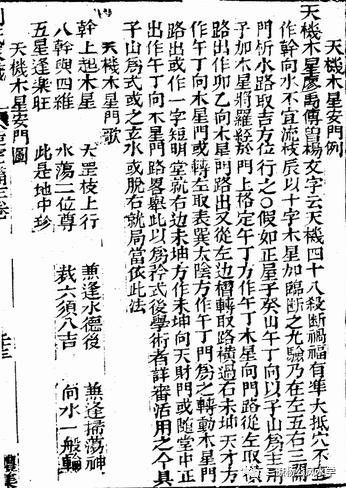 天機木星安門例
天機木星廖禹傳曽楊文字云天機四十八殺断禍福有準大抵穴不主
作幹向水不宜流枝辰以十字木星加臨断之尤驗乃在左五右三開
門祈水路取吉方位行之〇假如正屋子癸山午丁向以子山爲主用
子加木星將羅經於門上格定午丁方作午丁木星向門路從左取横
路出作卯乙向木星門路出又從左邊槽轉取路横過右未坤天才方
作午丁向木星門或轉左取表巽太陰方作午丁門爲之轉動木星門
路出或作一字短明堂就右边未坤方作未坤向天財門或随堂中正
出作午丁向木星門路畧舉此以爲矜式後學術者詳審活用之今具
子山爲式或之玄水或脫右就局當依此法
天機木星門歌
幹上起木星 天罡枝上行 兼逢水德後 兼逢掃蕩神
八幹與四維 水蕩二位尊 裁六須八吉 向水一般輪
五星逢桒旺 此是地中珍
天機木星安門圖